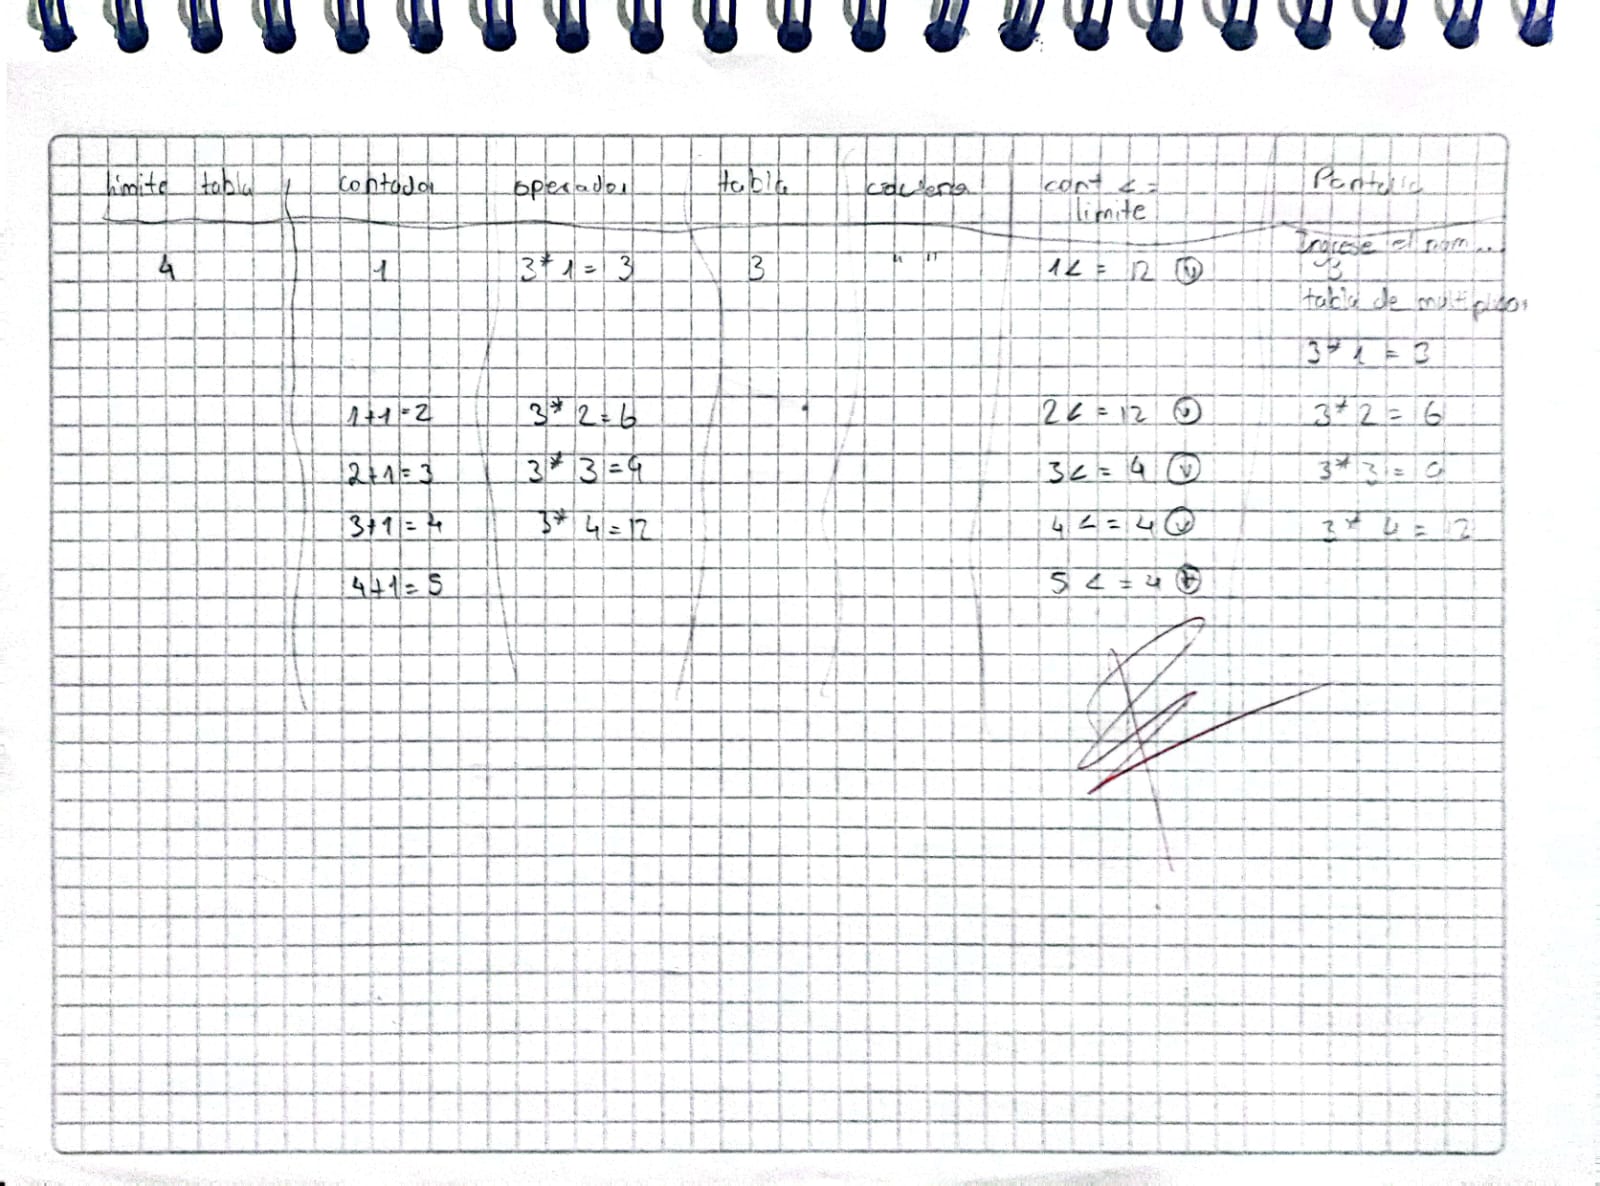 limite tabla contador operador tabla cadena cont <= Pantalla
limite
Ingrese el num...
4 1 3*1=3 3 " " 1<= 12 (v) 3
tabla de multiplicar
3*1=3
1+1=2 3*2=6 2<=12 (v) 3*2=6
2+1=3 3*3=9 3<=4 (v) 3*3=9
3+1=4 3*4=12 4<=4 (v) 3*4=12
4+1=5 5<=4 (F)